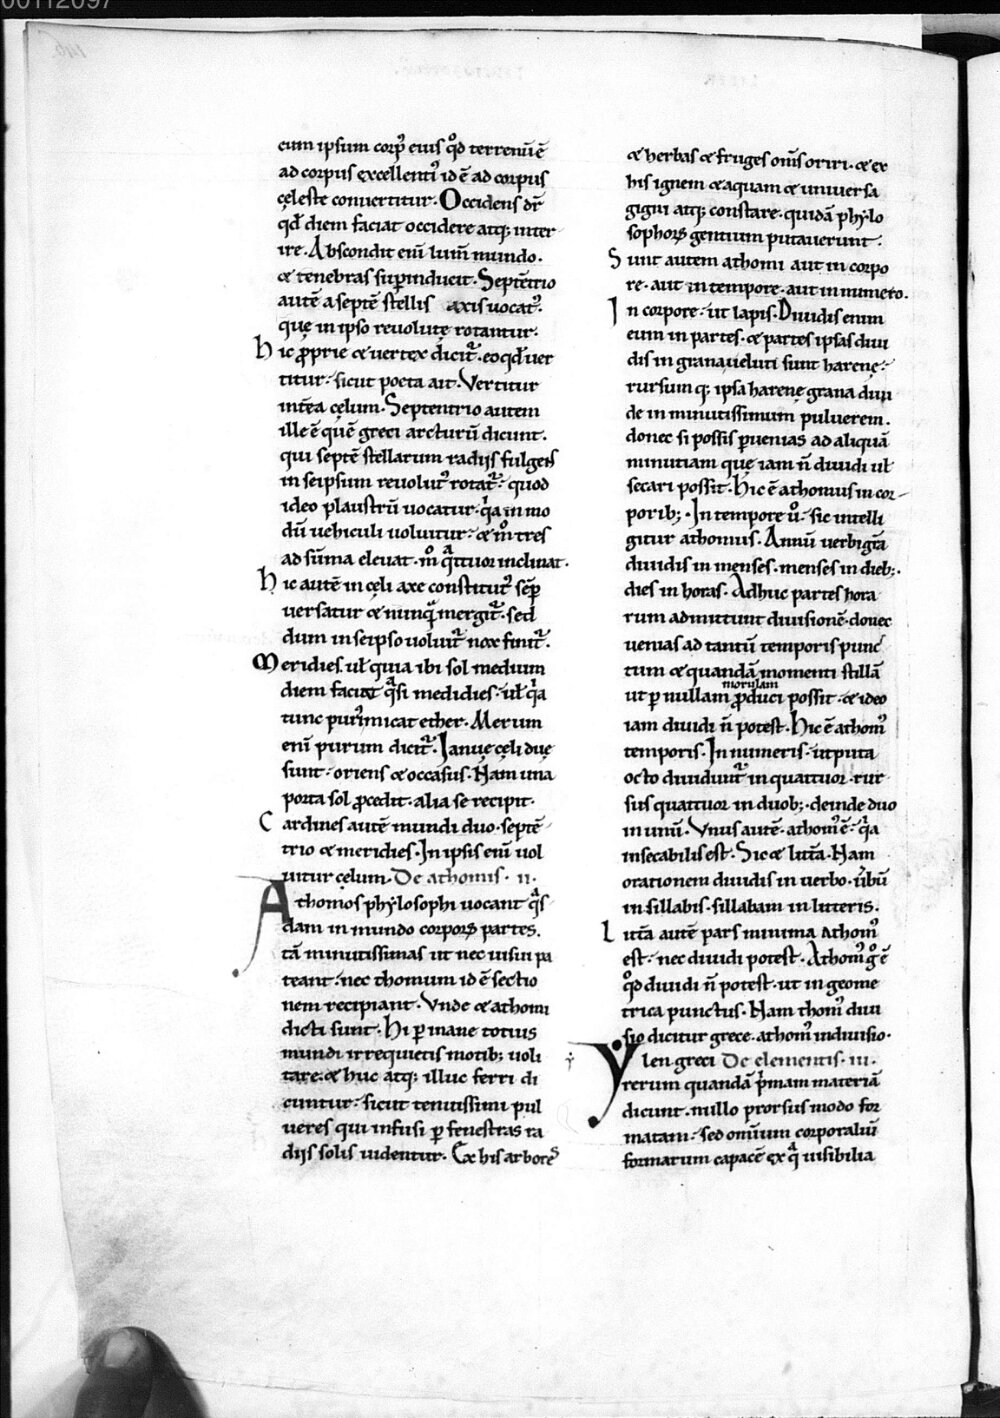 00112097
cum ipsum corpꝰ eius qͦd terrenū ē
ad corpus excellentiꝰ id ē ad corpus
cęleste conuertitur. Occidens dr̄
qđ diem faciat occidere atq; inter
ire. Abscondit eni᷑ lum̄ mundo.
& tenebras suꝑinducit. Septētrio
autē a septē stellis axis uocatᷣ.
quę in ipso reuolutę rotantur.
hic ꝓprie & uertex dicitᷣ. eo qđ uer
titur. sicut poeta ait. Vertitur
intēa cęlum. Septentrio autem
ille ē quē greci arcturū dicunt.
qui septē stellarum radijs fulgens
in seipsum reuolutꝰ rotatᷣ. quod
ideo plaustrū uocatur. qͥa in mo
dū uehiculi uoluitur. & mͦ tres
ad sūma eleuat. mͦ qͣttuor inclinat.
hic autē in cęli axe constitutꝰ sēꝑ
uersatur & nunqͣ mergitᷣ. sed
dum in seipso uoluitᷣ nox finitᷣ.
Meridies. uł quia ibi sol medium
diem facit qͣsi medidies. uł qͥa
tunc purꝰ micat ether. Merum
eni᷑ purum dicitᷣ. Ianuę cęli duę
sunt. oriens & occasus. Nam una
porta sol ꝓcedit. alia se recipit.
Cardines autē mundi duo. septē
trio & meridies. In ipsis eni᷑ uol
uitur cęlum. De athomis. ii.
Athomos phylosophi uocant qͣs
dam in mundo corporꝝ partes.
tā minutissimas ut nec uisui pa
teant. nec thomum id ē sectio
nem recipiant. Vnde & athomi
dicti sunt. Hi ꝑ inane totius
mundi irrequietis motib; uoli
tare. & huc atq; illuc ferri di
cuntur. sicut tenuissimi pul
ueres qui infusi ꝑ fenestras ra
diis solis uidentur. Ex his arbores
& herbas & fruges om̄s oriri. & ex
his ignem & aquam & uniuersa
gigni atq; constare. quidā phylo
sophorꝝ gentium putauerunt.
Sunt autem athomi aut in corpo
re. aut in tempore. aut in numero.
In corpore. ut lapis. Diuidis enim
eum in partes. & partes ipsas diui
dis in grana ueluti sunt harenę.
rursumq; ipsa harenę grana diui
de in minutissimum puluerem.
donec si possis ꝑuenias ad aliquā
minutiam quę iam n̄ diuidi uł
secari possit. Hic ē athomus in cor-
porib;. In tempore ů. sic intelli
gitur athomus. Annū uerbi gr̄a
diuidis in menses. menses in dieb;.
dies in horas. Adhuc partes hora
rum admittunt diuisionē. donec
uenias ad tantū temporis punc
tum & quandā momenti stillā
morulam
ut ꝑ nullam ꝓduci possit. & ideo
iam diuidi n̄ potest. Hic ē athomꝰ
temporis. In numeris. ut puta
octo diuiduntᷣ in quattuor. rur
sus quattuor in duob;. deinde duo
in unū. Vnus autē. athomꝰ ē. qͥa
insecabilis est. Sic & litt̄a. Nam
orationem diuidis in uerbo. ůbū
in sillabis. sillabam in litteris.
Litt̄a autē pars minima athomꝰ
est. nec diuidi potest. Athomꝰ gͦ ē
qͦd diuidi n̄ potest. ut in geome
trica punctus. Nam thomꝰ diui
sio dicitur grece. athomꝰ indiuisio.
Ylen greci De elementis. iii.
rerum quandā p̄mam materiā
dicunt. nullo prorsus modo for
matam. sed omnium corporaliū
formarum capacē ex qͣ uisibilia